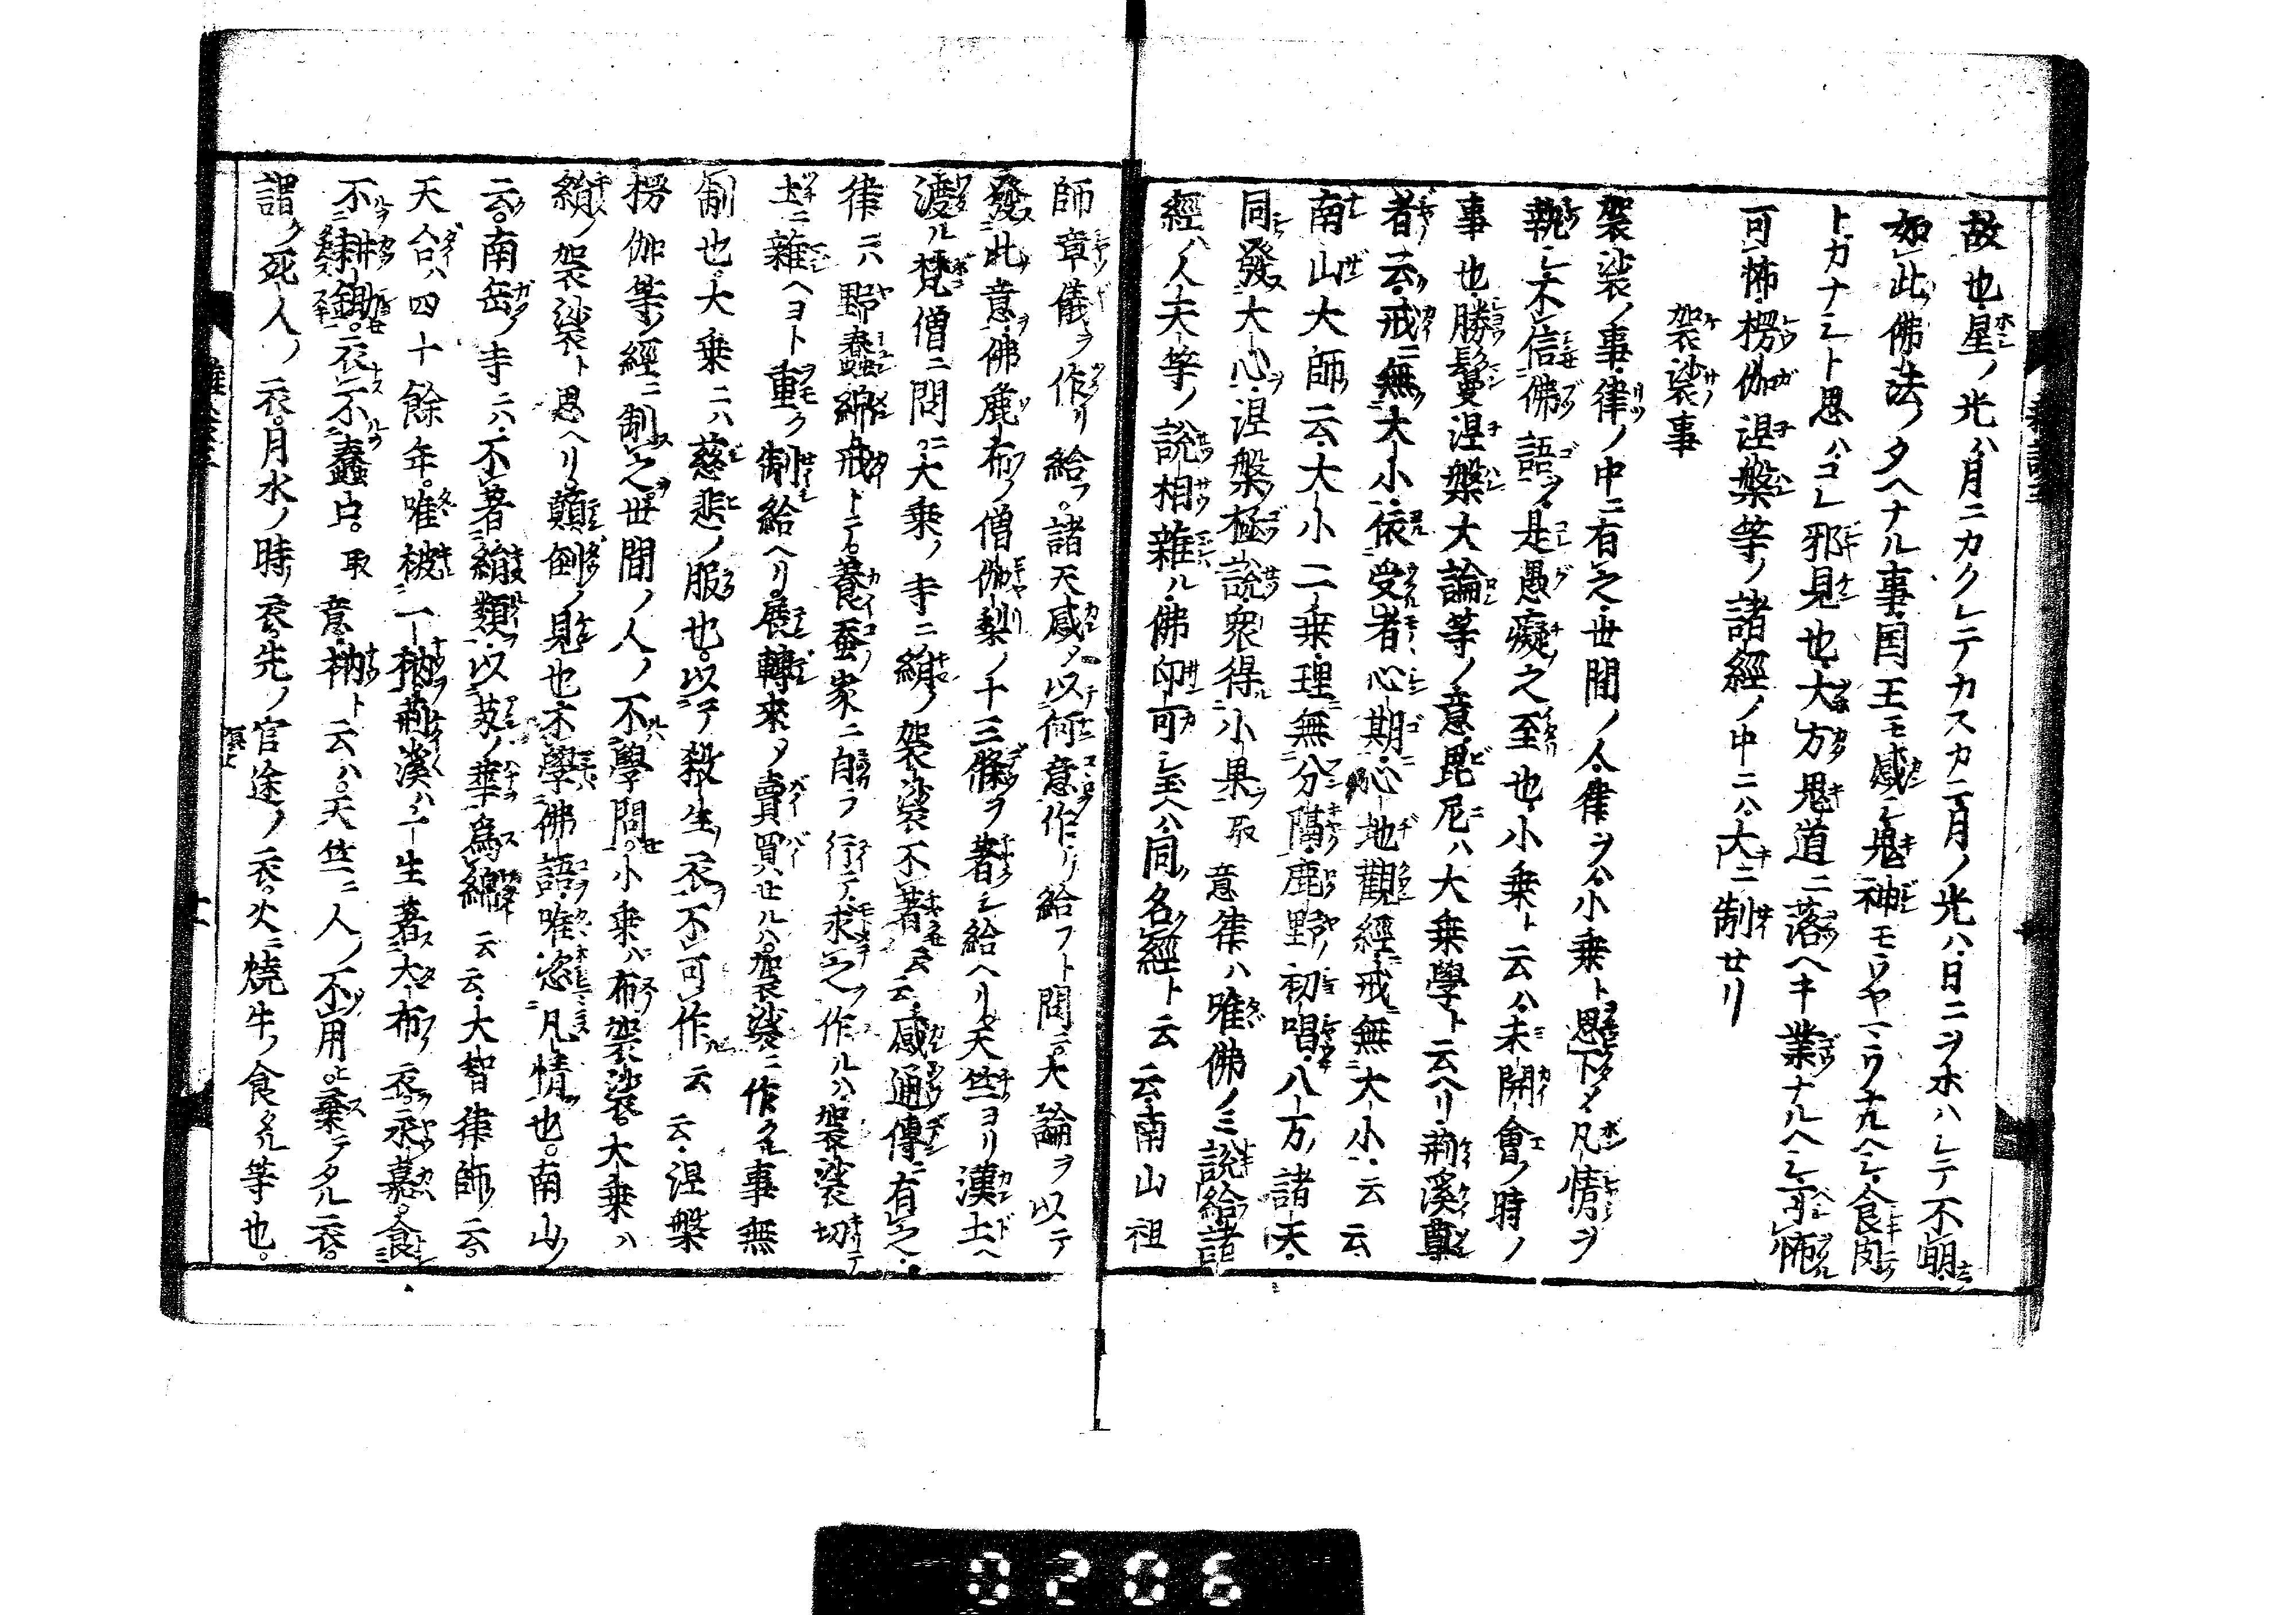 故也星ノ光ハ月ニカクレテカスカニ月ノ光ハ日ニヲホハレテ不萌
如此佛法ノタヘナル事国王モ感シ鬼神モウヤマウナルヘシ食肉
トカナシト思ハコレ邪見也大方鬼道ニ落ヘキ業ナルヘシ可怖
可怖楞伽涅槃等ノ諸經ノ中ニハ大ニ制セリ
袈裟事
袈裟ノ事律ノ中ニ有之世間ノ人律ヲハ小乗ト思下メ凡情ヲ
執シ不信佛語ヲ是愚癡之至也小乗ト云ハ未開會ノ時ノ
事也勝鬘涅槃大論等ノ意毘尼ハ大乗學ト云ヘリ荊溪尊
者云戒無大小依受者心期心地觀經戒無大小云云
南山大師云大小二乗理無分隔鹿野初唱八方諸天
同發大心涅槃極説衆得小果取意律ハ唯佛ノミ説給諸
經ハ人天等ノ説相雜ル佛印可シ至ヘハ同名經ト云云南山祖
師章儀ヲ作リ給フ諸天感シ以何意作リ給フト問大論ヲ以テ
發此意佛麁布ノ僧伽梨ノ十三條ヲ著シ給ヘリ天竺ヨリ漢土ヘ
渡ル梵僧ニ問大乗ノ寺ニ絹ノ袈裟不著云云感通傳有之
律ニハ野蠶綿戒トテ養蚕家ニ自ラ行テ求之作ルハ袈裟切テ
土ニ雜ヘヨト重ク制給ヘリ展轉來ノ賣買セルハ袈裟ニ作ル事無
制也大乗ニハ慈悲ノ服也以テ殺生衣不可作云云涅槃
楞伽等ノ經ニ制之世間ノ人ノ不學問小乗ハ布袈裟大乗ハ
絹ノ袈裟ト思ヘリ顛倒ノ見也不學佛語唯恣凡情也南山ノ
云南岳ノ寺ニハ不著絹類以芰ノ華爲綿云云大智律師云
天台ハ四十餘年唯被一衲荊溪ハ一生著大布衣永嘉食
不耕鋤衣不蠶口取意衲ト云ハ天竺ニ人ノ不用棄テタル衣
謂ク死人ノ衣月水ノ時ノ衣先ノ官途ノ衣火燒牛ノ食タル等也
0206